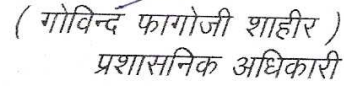 ( गोविन्द फागोजी शाहीर )
प्रशासनिक अधिकारी